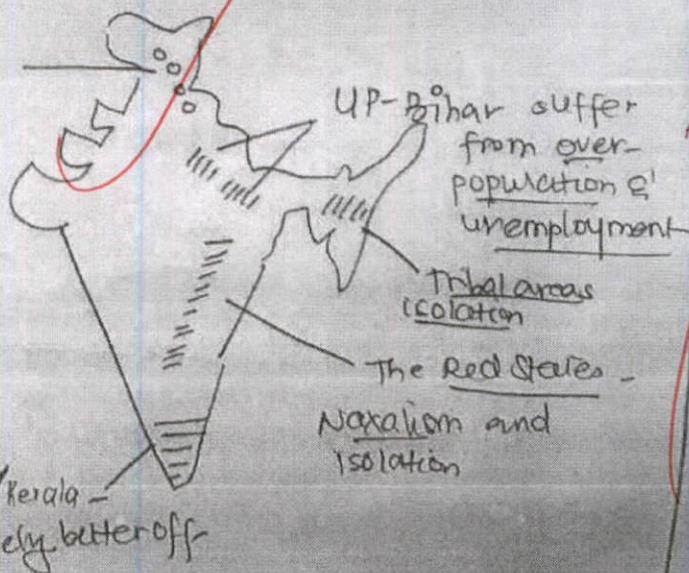 UP-Bihar suffer
from over-
population &
unemployment
Tribal areas
isolation
The Red States -
Naxalism and
isolation
Kerala -
ely better off